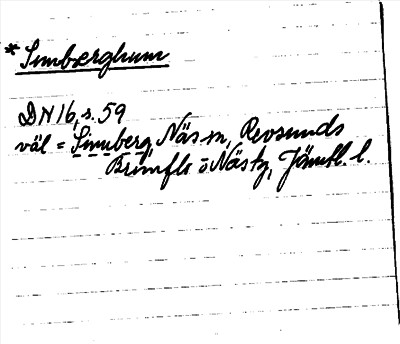 * Simberghum
DN 16, s. 59
väl = Simberg, Näs sn, Revsunds
Brunflo o Näs tg, Jämtl. l.